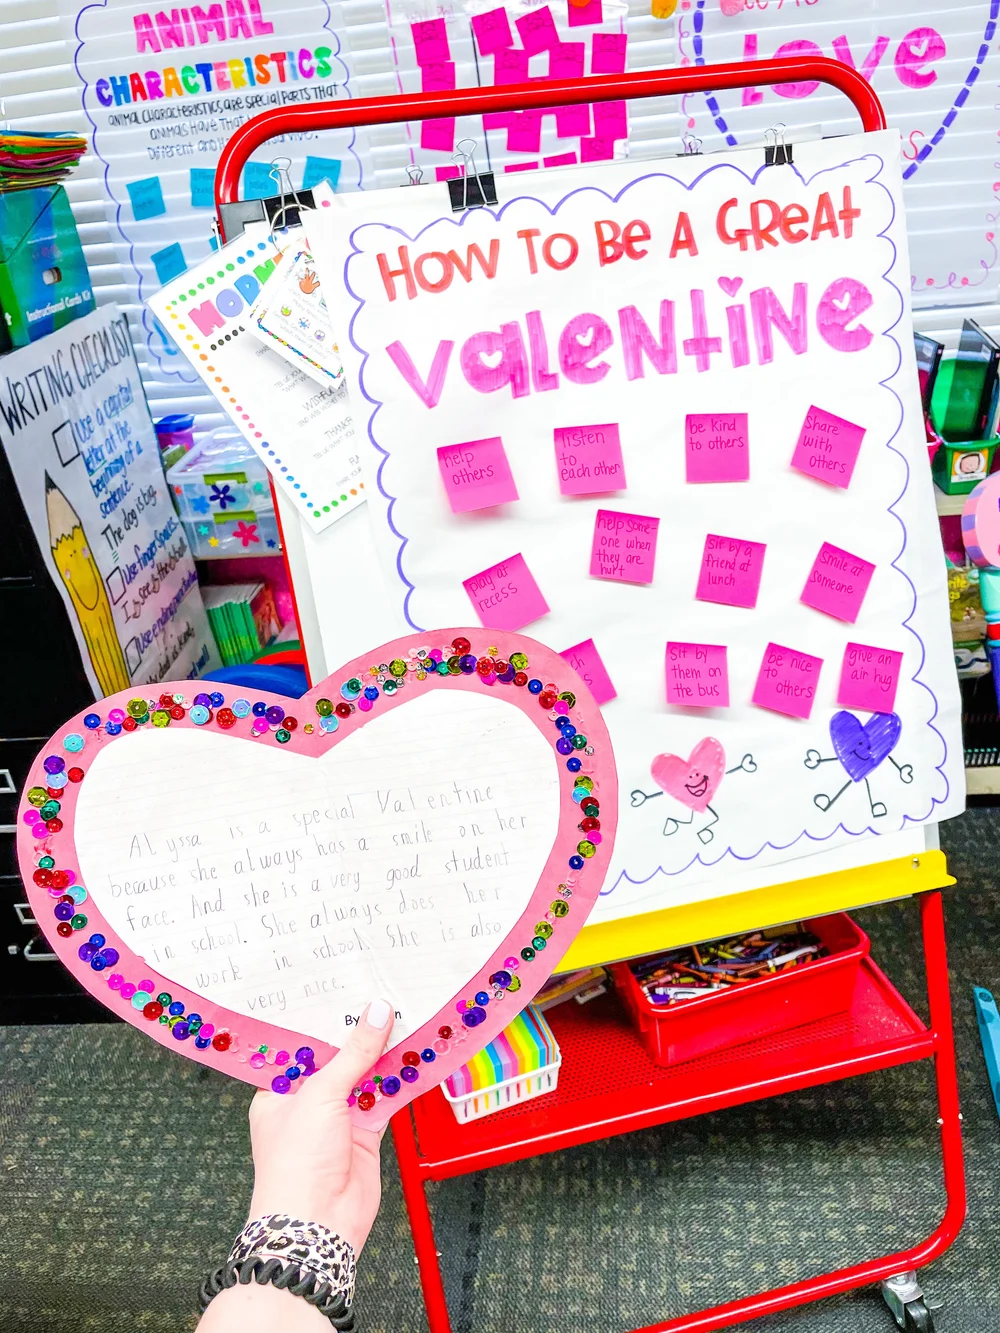 ANIMAL
CHARACTERISTICS
ANIMAL CHARACTERISTICS ARE SPECIAL PARTS THAT
ANIMALS HAVE THAT
Different and
LOVE
Instructional Cards Kit
WRITING CHECKLIST
Use a capital
letter at the
beginning of a
sentence.
The dog is big.
Use finger spaces.
HOW TO BE A GREAT
VALENTINE
help
others
listen
to
each other
be kind
to others
share
with
others
play at
recess
help some-
one when
they are
hurt
sit by a
friend at
lunch
smile at
someone
sit by
them on
the bus
be nice
to
others
give an
air hug
Alyssa is a special Valentine
because she always has a smile on her
face. And she is a very good student
in school. She always does her
work in school. She is also
very nice.
By